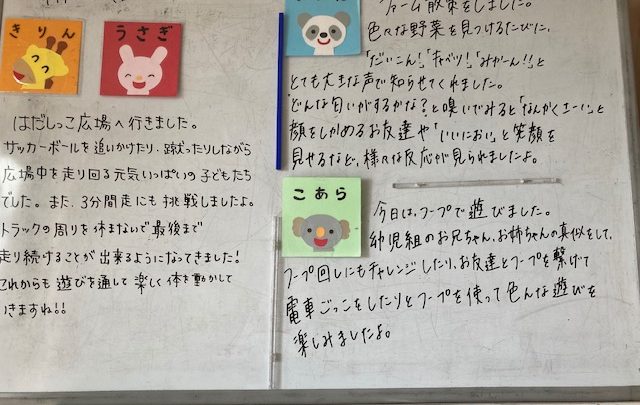 きりん
うさぎ
はだしっこ広場へ行きました。
サッカーボールを追いかけたり、蹴ったりしながら
広場中を走り回る元気いっぱいの子どもたち
でした。また、3分間走にも挑戦しましたよ。
トラックの周りを休まないで最後まで
走り続けることが出来るようになってきました!
これからも遊びを通して楽しく体を動かして
いきますね!!
ファーム散策をしました。
色々な野菜を見つけるたびに、
「だいこん!」「キャベツ!」「みかーん!!」と
とても大きな声で知らせてくれました。
どんな匂いがするかな?と嗅いでみると「なんかくさーい」と
顔をしかめるお友達や「いいにおい」と笑顔を
見せるなど、様々な反応が見られましたよ。
こあら
今日は、フープで遊びました。
幼児組のお兄ちゃん、お姉ちゃんの真似をして、
フープ回しにもチャレンジしたり、お友達とフープを繋げて
電車ごっこをしたりとフープを使って色んな遊びを
楽しみましたよ。